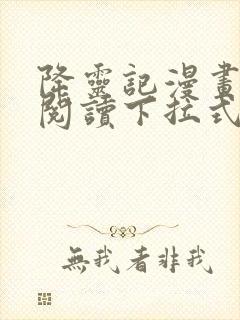 降靈記漫畫
閱讀下拉式
無我者非我